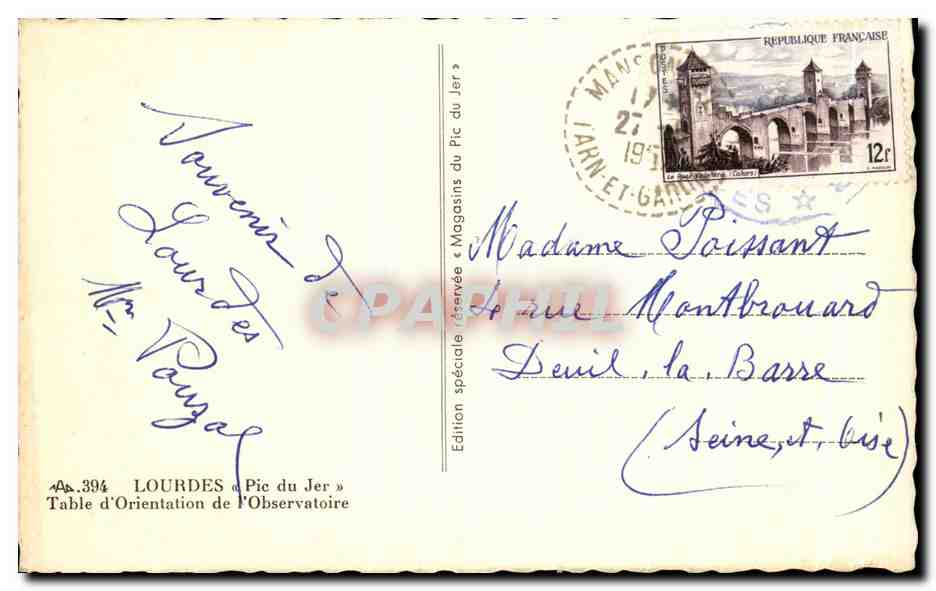 Souvenir de
Lourdes
Mme Pouzal
.394 LOURDES « Pic du Jer »
Table d'Orientation de l'Observatoire
Edition spéciale réservée « Magasins du Pic du Jer »
REPUBLIQUE FRANÇAISE
POSTES
12f
27
TARN-ET-GARO
ES
Madame Poissant
rue Montbrouard
Deuil. la. Barre
(Seine, et, Oise)
CPAPHIL